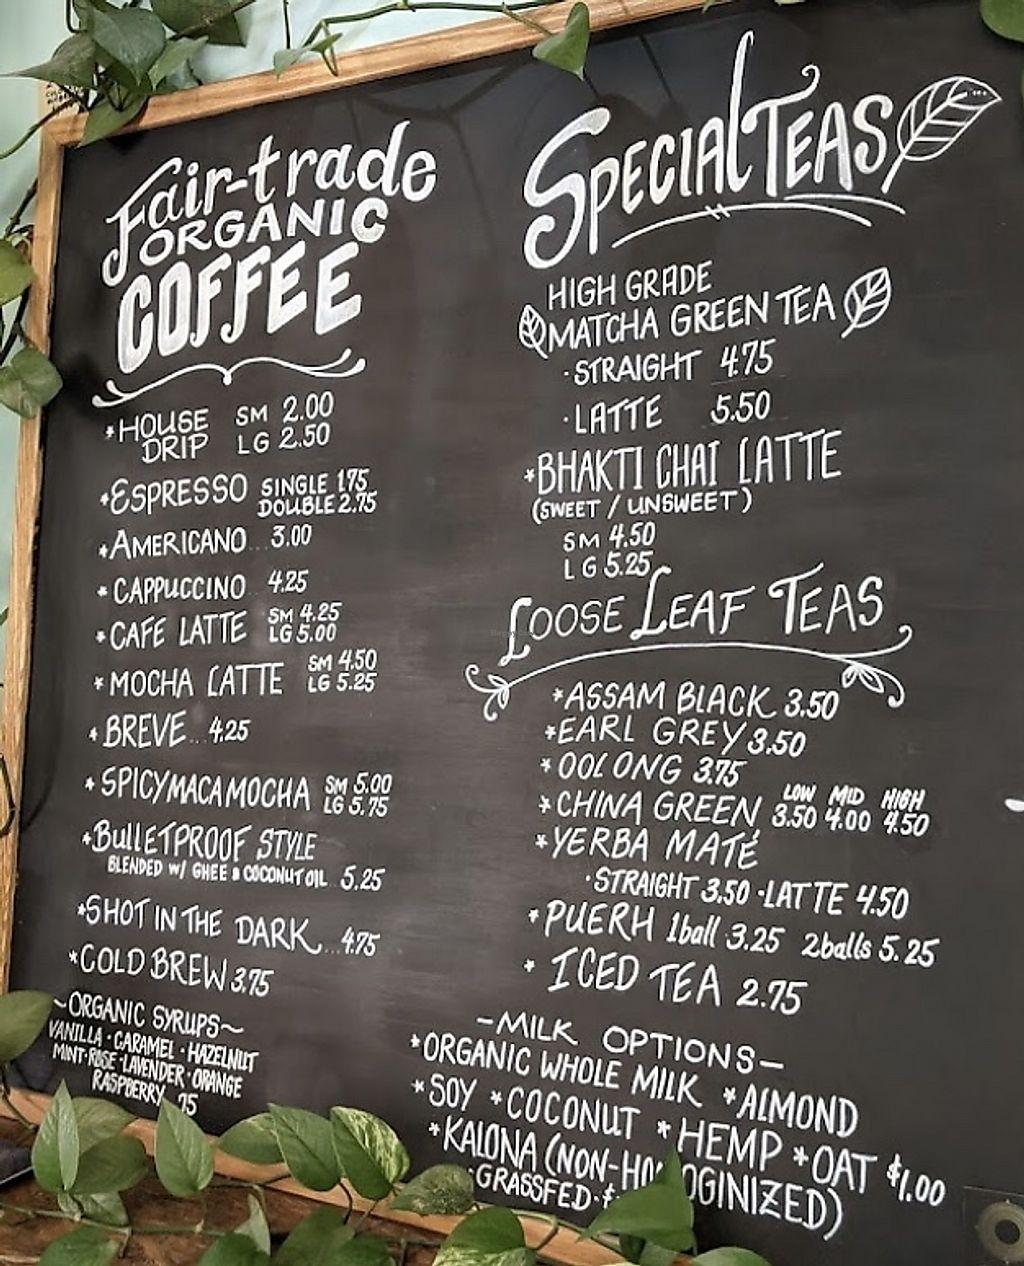 Fair-trade
ORGANIC
COFFEE
*HOUSE DRIP SM 2.00
LG 2.50
*ESPRESSO SINGLE 1.75
DOUBLE 2.75
*AMERICANO... 3.00
*CAPPUCCINO 4.25
*CAFE LATTE SM 4.25
LG 5.00
*MOCHA LATTE SM 4.50
LG 5.25
*BREVE... 4.25
*SPICY MACA MOCHA SM 5.00
LG 5.75
*BULLETPROOF STYLE
BLENDED W/ GHEE & COCONUT OIL 5.25
*SHOT IN THE DARK... 4.75
*COLD BREW 3.75
~ORGANIC SYRUPS~
VANILLA · CARAMEL · HAZELNUT
MINT · ROSE · LAVENDER · ORANGE
RASPBERRY .75
SPECIALTEAS
HIGH GRADE
MATCHA GREEN TEA
· STRAIGHT 4.75
· LATTE 5.50
*BHAKTI CHAI LATTE
(SWEET / UNSWEET)
SM 4.50
LG 5.25
LOOSE LEAF TEAS
*ASSAM BLACK 3.50
*EARL GREY 3.50
*OOLONG 3.75
*CHINA GREEN LOW 3.50 MID 4.00 HIGH 4.50
*YERBA MATÉ
· STRAIGHT 3.50 · LATTE 4.50
*PUERH 1ball 3.25 2balls 5.25
* ICED TEA 2.75
-MILK OPTIONS-
*ORGANIC WHOLE MILK *ALMOND
*SOY *COCONUT *HEMP *OAT $1.00
*KALONA (NON-HO OGINIZED)
· GRASSFED · $